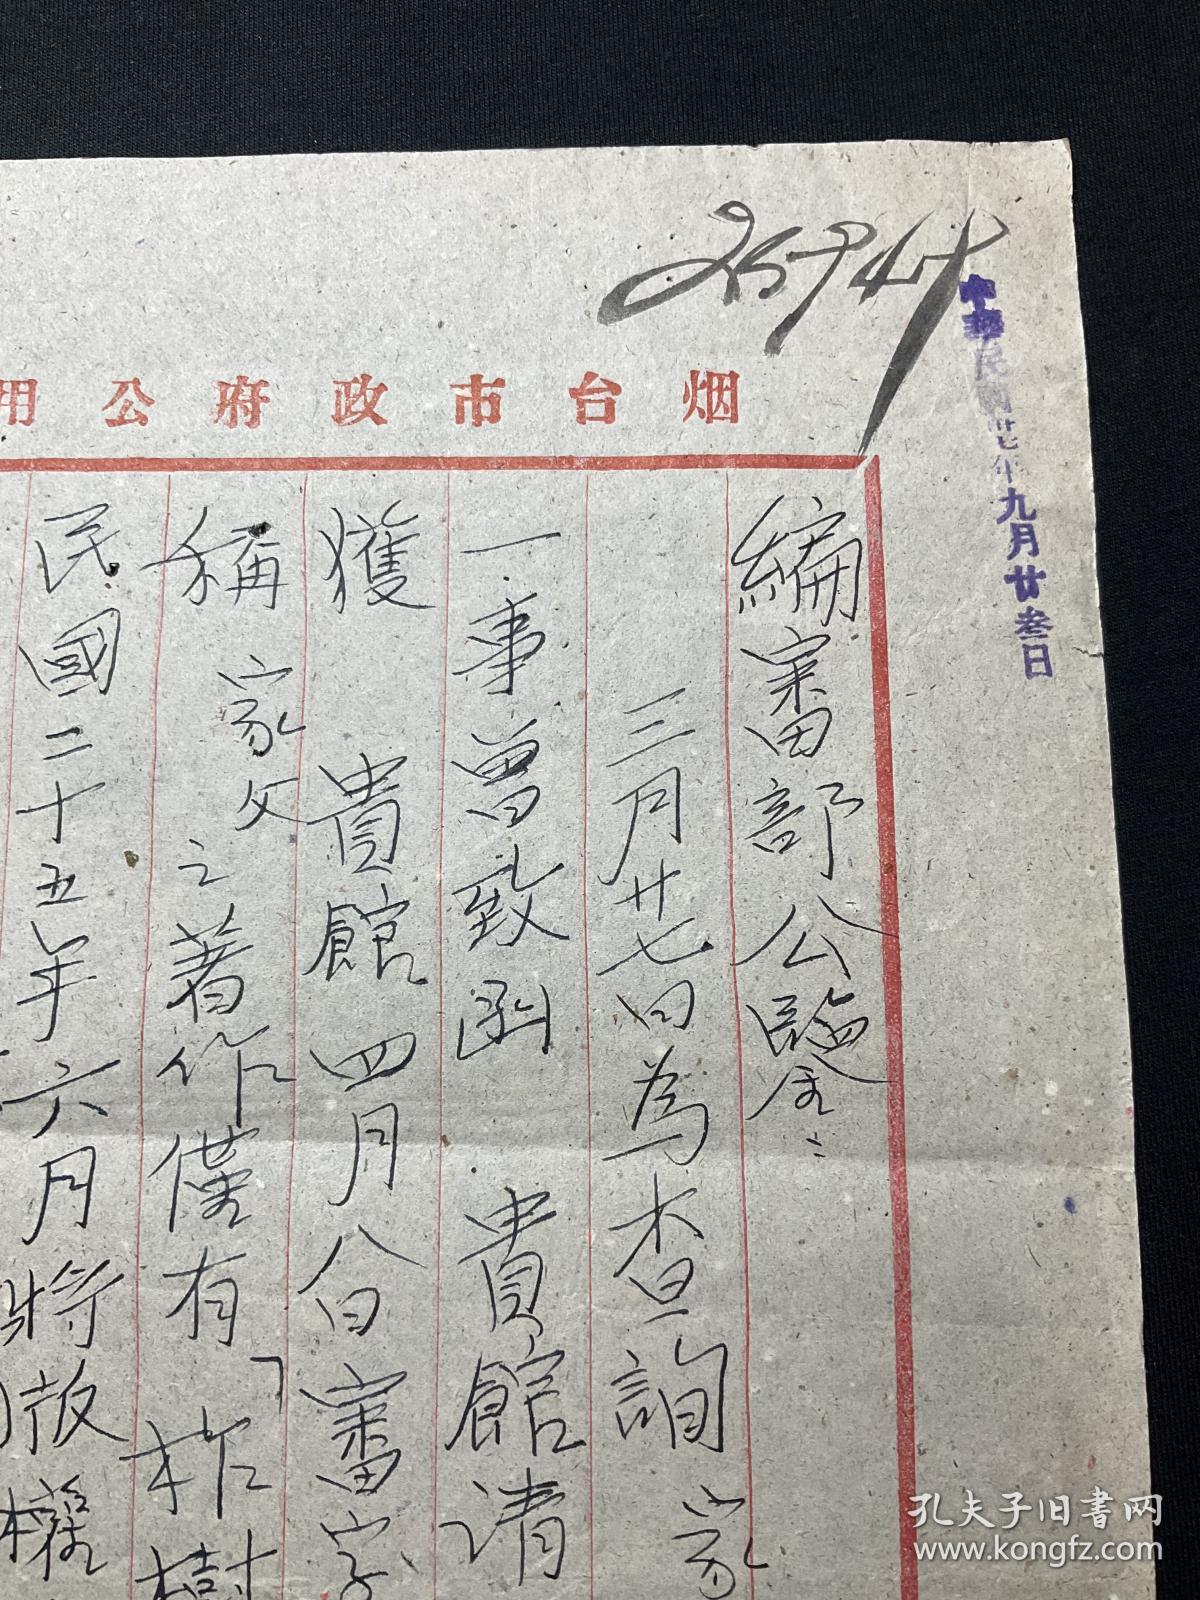 烟台市政府公用
中華民國卅七年九月廿叁日
編審部公鑒：
三月廿七日為查詢家
一事曾致函 貴館請
獲 貴館四月八日審字
稱 家父之著作僅有「柞樹
民國二十五年六月將版權
孔夫子旧书网
www.kongfz.com